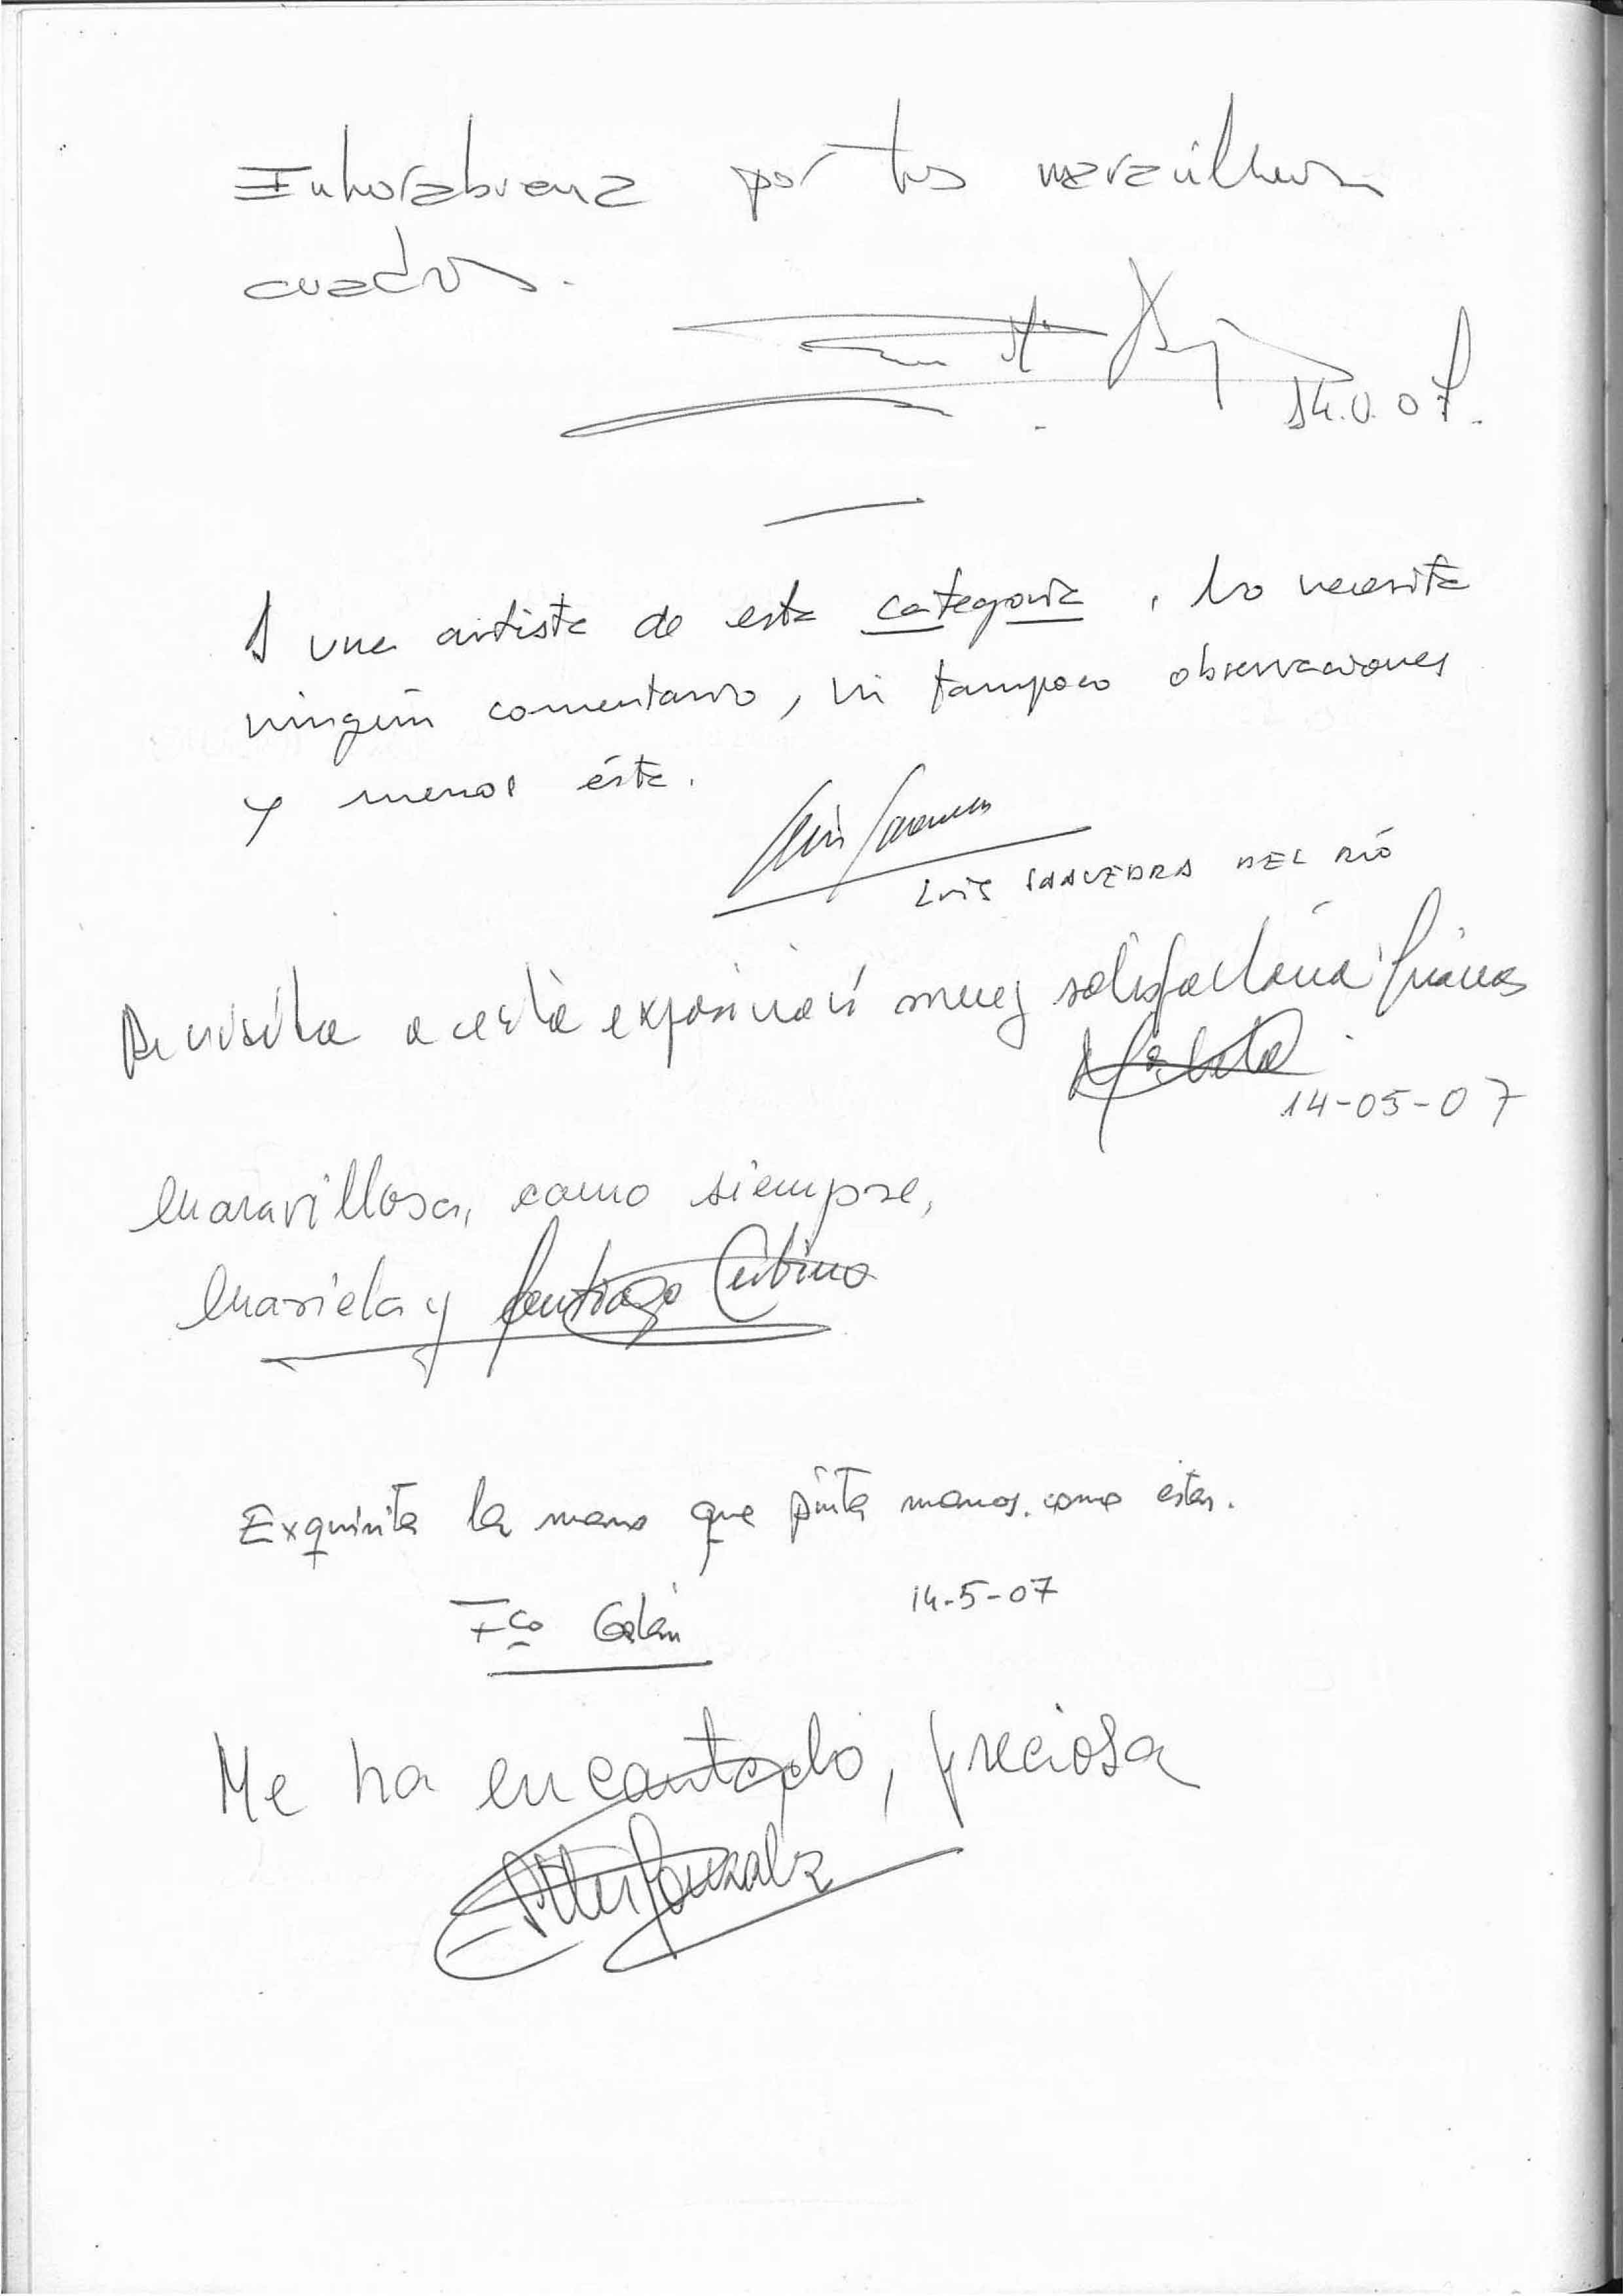 Enhorabuena por tus maravillosos
cuadros.
14.V.07.
A una artista de esta categoría, No necesita
ningún comentario, ni tampoco observaciones
y menos ésta.
Luis Saavedra
LUIS SAAVEDRA DEL RÍO
visita a esta exposición muy satisfactoria
14-05-07
Maravillosa, como siempre,
Mariela y Santiago Cubino
Exquisita la mano que pinta manos como estas.
Fco Galán 14-5-07
Me ha encantado, preciosa
Gonzalez